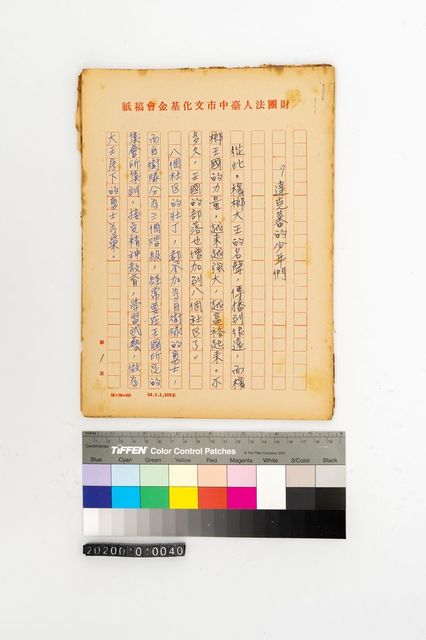 財團法人臺中市文化基金會稿紙
9 達克蕃的少年們
從此，檳榔大王的名聲，傳播到很遠，而檳
榔王國的力量，越來越強大，越富裕起來。不
多久，王國的部落也增加到八個社区了。
八個社区的壯丁，都参加為自衛隊的勇士，
而自衛隊分為三個階級，經常要在王國所定的
集會所集訓，接受精神教育，學習武藝，做為
大王席下的勇士為榮。
第 1 頁
centimetres
TIFFEN Color Control Patches
Blue Cyan Green Yellow Red Magenta White 3/Color Black
20200101040040